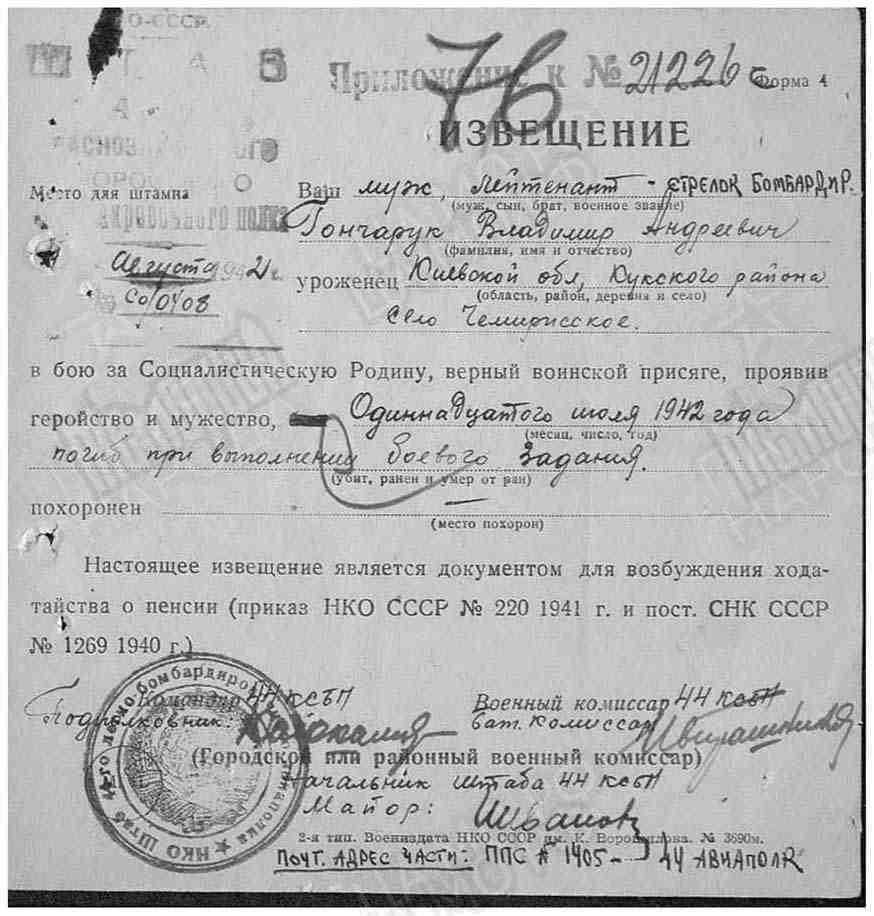 НКО-СССР
ШТАБ
Приложение к № 21226 с
Форма 4
76
ИЗВЕЩЕНИЕ
Место для штампа
Ваш муж, лейтенант - СТРЕЛОК БОМБАРДИР.
(муж, сын, брат, военное звание)
Гончарук Владимир Андреевич
(фамилия, имя и отчество)
Августа 1942 г.
уроженец Киевской обл, Кукского района
(область, район, деревня и село)
со/0408
село Чемирисское.
в бою за Социалистическую Родину, верный воинской присяге, проявив
геройство и мужество, Одиннадцатого июля 1942 года
(месяц, число, год)
погиб при выполнении боевого задания.
(убит, ранен и умер от ран)
похоронен —
(место похорон)
Настоящее извещение является документом для возбуждения хода-
тайства о пенсии (приказ НКО СССР № 220 1941 г. и пост. СНК СССР
№ 1269 1940 г.)
Командир 44 КСБП
Военный комиссар 44 КСБП
Подполковник:
бат. комиссар
(Городской или районный военный комиссар)
Начальник штаба 44 КСБП
Майор: Иванов
2-я тип. Воениздата НКО СССР им. К. Ворошилова. № 3690м.
ПОЧТ. АДРЕС ЧАСТИ: ППС № 1405 - 44 АВИАПОЛК
НКО Штаб 44-го легко-бомбардиро авиаполка